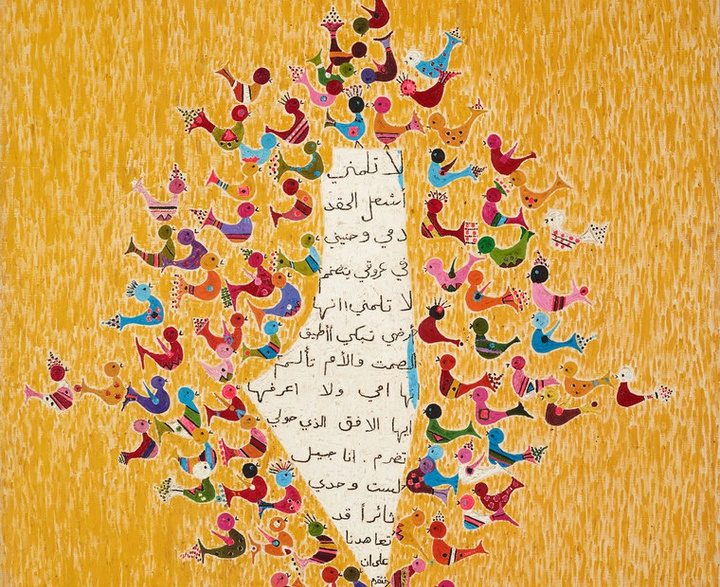 لا تلمني
اشعل الحقد
دمي وحنيني
في عروقي
لا تلمني!! انها
ارضي تبكي أأطيق
الصمت والأم
امي ولا اعرفها
ايها الافق الذي حولي
تضرم . انا جيل
لست وحدي
ثائراً قد
تعاهدنا
على ان